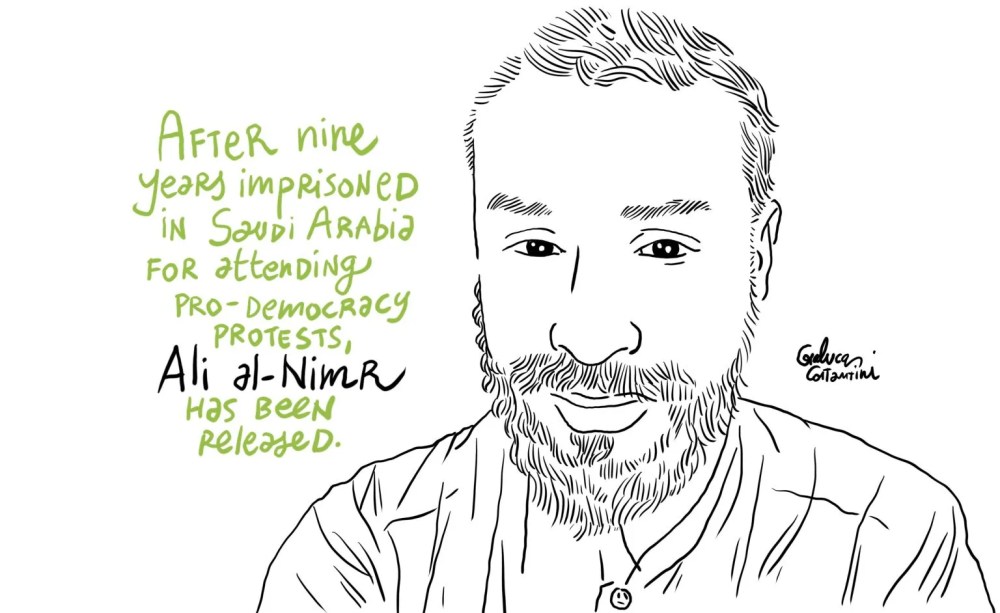 AFTER nine
years imprisoned
in Saudi Arabia
for attending
pro-democracy
protests,
Ali al-Nimr
has been
released.
Gianluca
Costantini